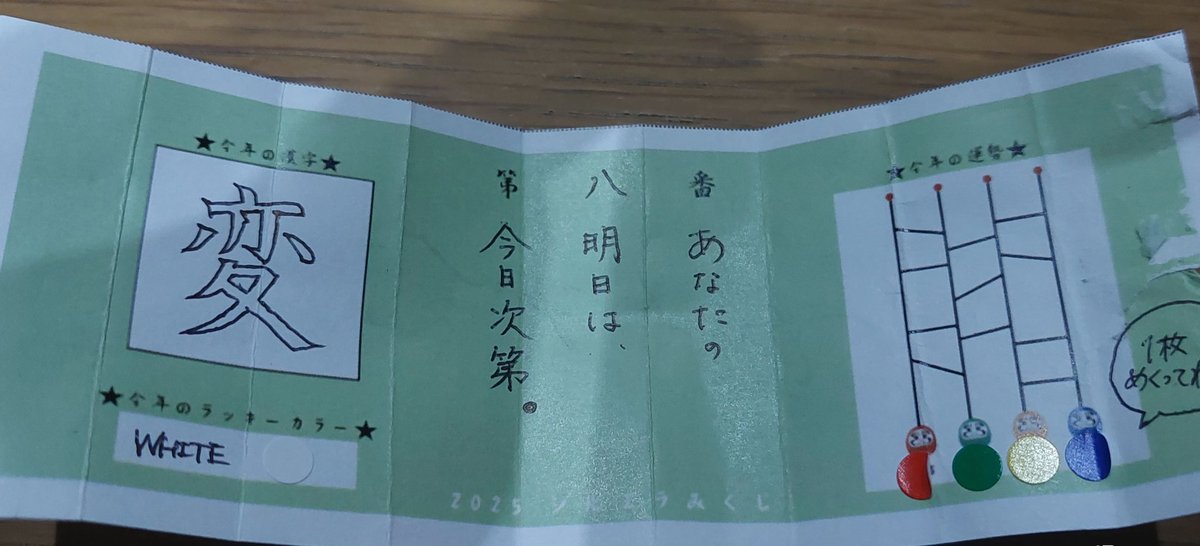 ★今年の漢字★
変
★今年のラッキーカラー★
WHITE
第八番
あなたの
明日は、
今日次第。
2025 みくじ
★今年の運勢★
1枚
めくってね